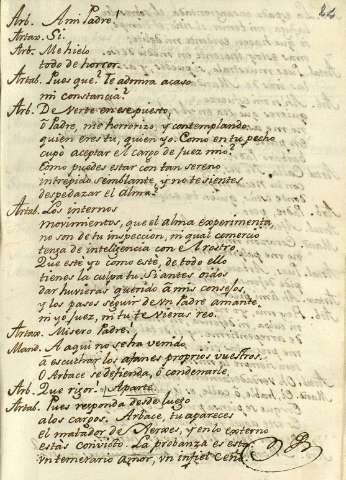 24
Arb. A mi Padre!
Artax. Si.
Arb. Me hielo
todo de horror.
Artab. Pues que? Te admira acaso
mi constancia?
Arb. De verte en ese puesto,
ò Padre, me horrorizo, y contemplando
quien eres tu, quien yo. Como en tu pecho
cupo aceptar el cargo de Juez mio?
Como puedes estar con tan sereno
intrepido semblante, y no te sientes
despedazar el alma?
Artab. Los internos
movimientos, que el alma experimenta,
no son de tu inspeccion, ni qual comercio
tenga de inteligencia con el rostro.
Que estè yo como estè, de todo ello
tienes la culpa tu. Si antes oidos
dar huvieras querido à mis consejos,
y los pasos seguir de vn Padre amante,
ni yo Juez, ni tu te vieras reo.
Artax. Misero Padre!
Mand. A aqui no se ha venido
à escuchar los afanes proprios vuestros.
ò Arbace se defienda, ò condenarle.
Arb. Que rigor! Aparte.
Artab. Pues responda desde luego
a los cargos. Arbace, tu apareces
el matador de Xerxes, y en lo externo
estàs convicto. La probanza es esta
vn temerario amor, vn infiel ceño